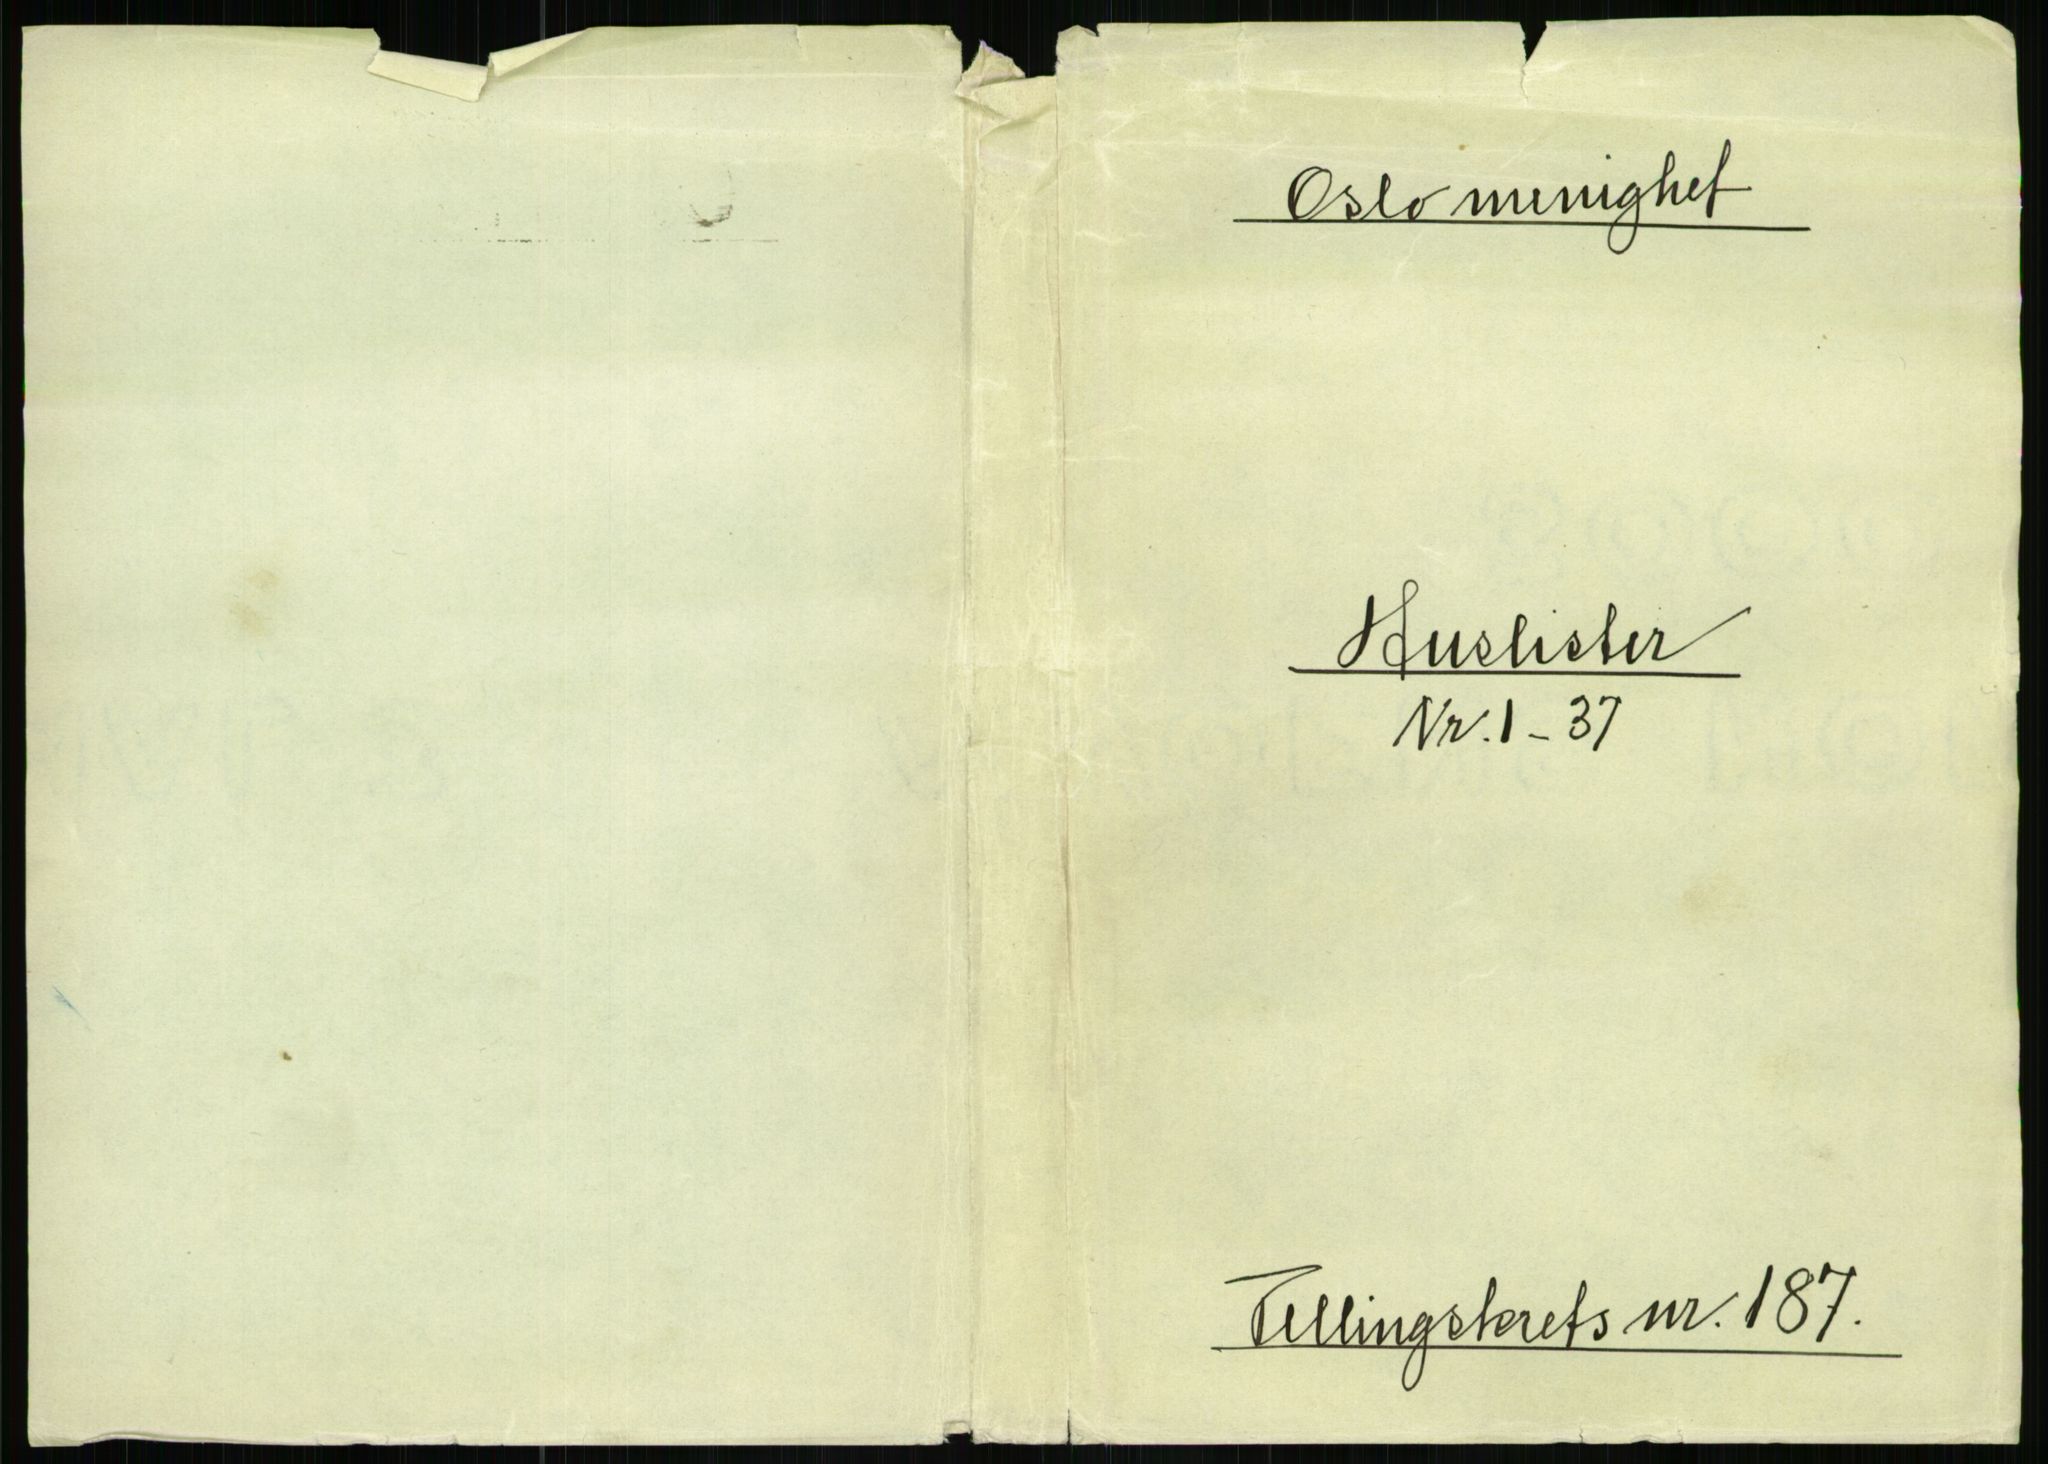 Oslo menighet
Huslister
Nr. 1 - 37
Tellingskrets nr. 187.